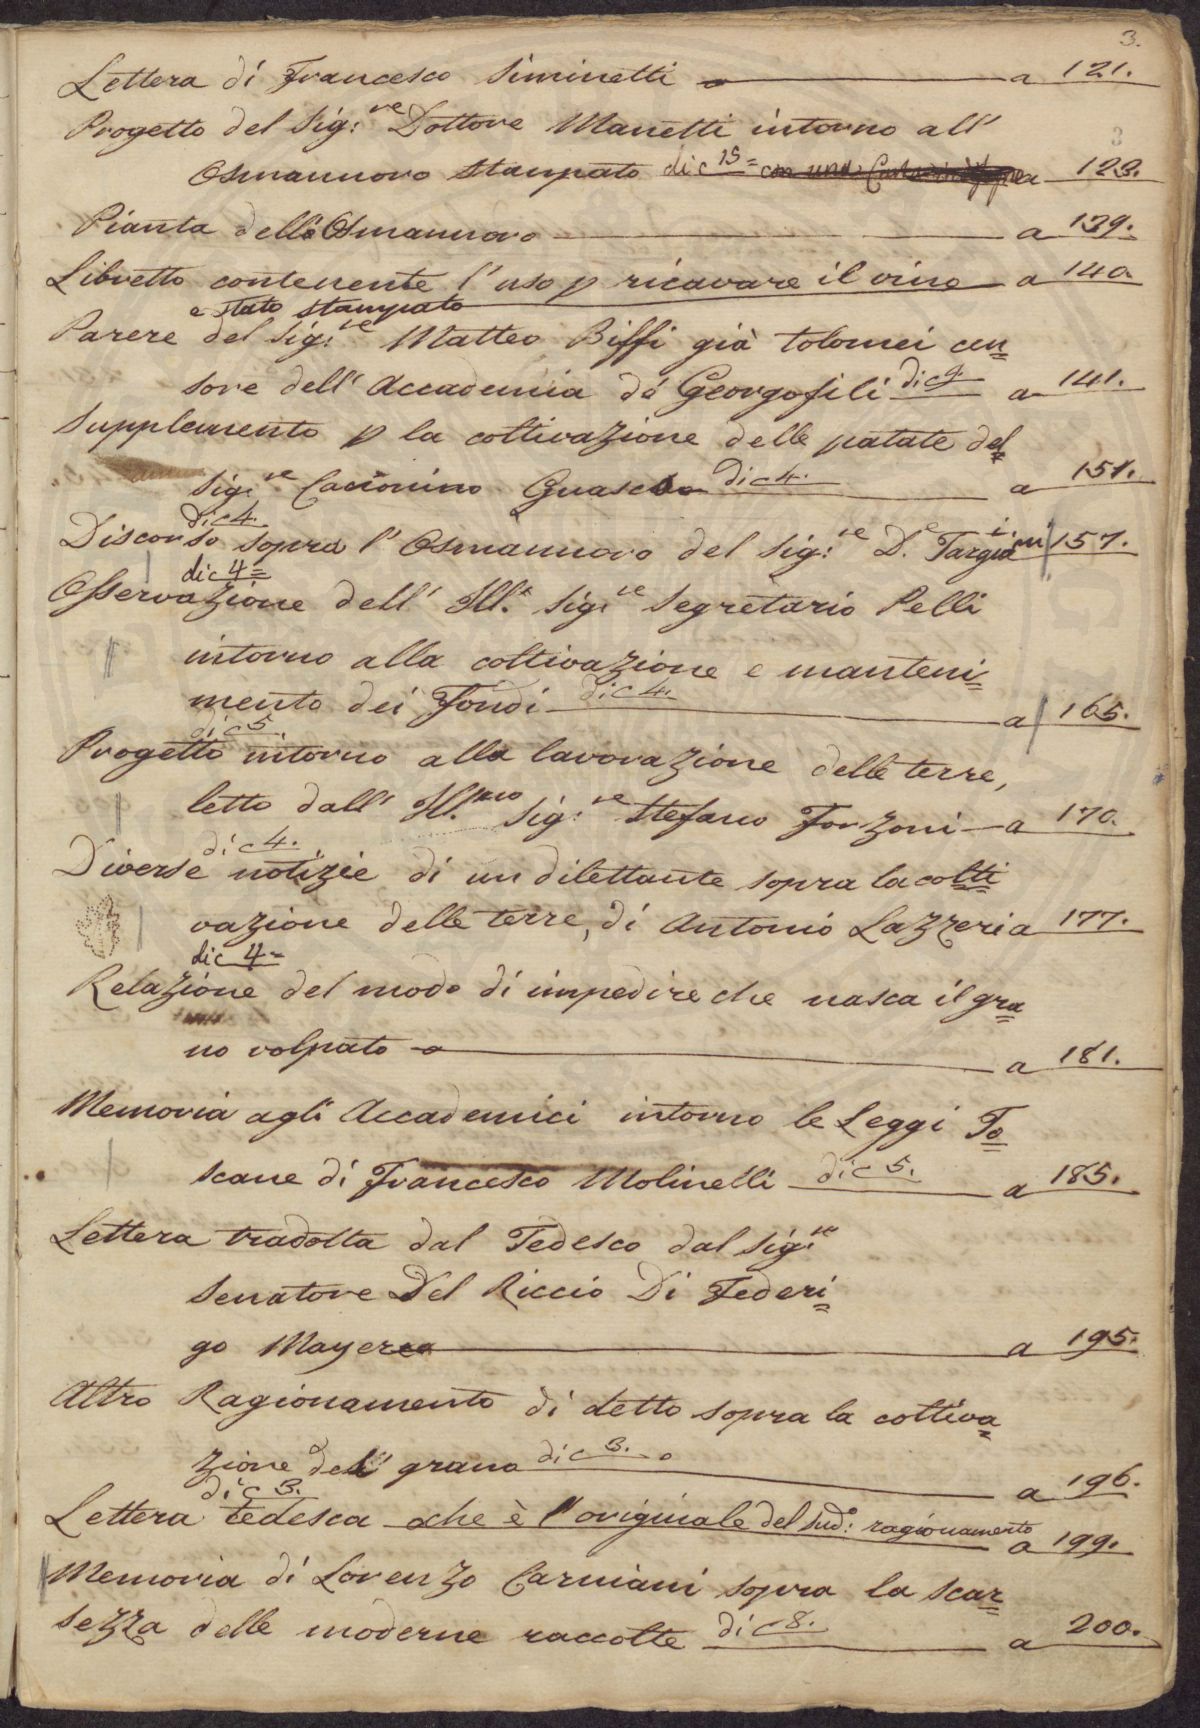 3.
Lettera di Francesco Siminetti a 121.
Progetto del Sig:re Dottore Manetti intorno all'
Osmannoro stampato di c 15= con una a 123.
3
Pianta dell'Osmannoro a 139.
Libretto contenente l'uso p ricavare il vino a 140.
e stato stampato
Parere del Sig:re Matteo Biffi già Tolomei cen=
sore dell'Accademia dé Georgofili di c 9. a 141.
Supplemento p la coltivazione delle patate del=
Sig:re Guasco di c 4. a 151.
di c 4.
Discorso sopra l'Osmannoro del Sig:re D.e Targioni 157.
di c 4=
Osservazione dell' Ill.e Sig:re Segretario Pelli
intorno alla coltivazione e manteni=
mento dei Fondi di c 4. a 165.
di c 5
Progetto intorno alla lavorazione delle terre,
letto dall' Ill.mo Sig:re Stefano Forzoni a 170.
di c 4.
Diverse notizie di un dilettante sopra la colti=
vazione delle terre, di Antonio Lazzeri a 177.
di c 4=
Relazione del modo di impedire che nasca il gra=
no volpato a 181.
Memoria agli Accademici intorno le Leggi To=
scane di Francesco Molinelli di c 5. a 185.
Lettera tradotta dal Tedesco dal Sig:re
Senatore Del Riccio Di Federi=
go Mayer a 195.
Altro Ragionamento di detto sopra la coltiva=
zione del grano di c 3. a 196.
di c 3.
Lettera tedesca che è l'originale del sud:o ragionamento a 199.
Memoria di Lorenzo Carniani sopra la scar=
sezza delle moderne raccolte di c 8. a 200.